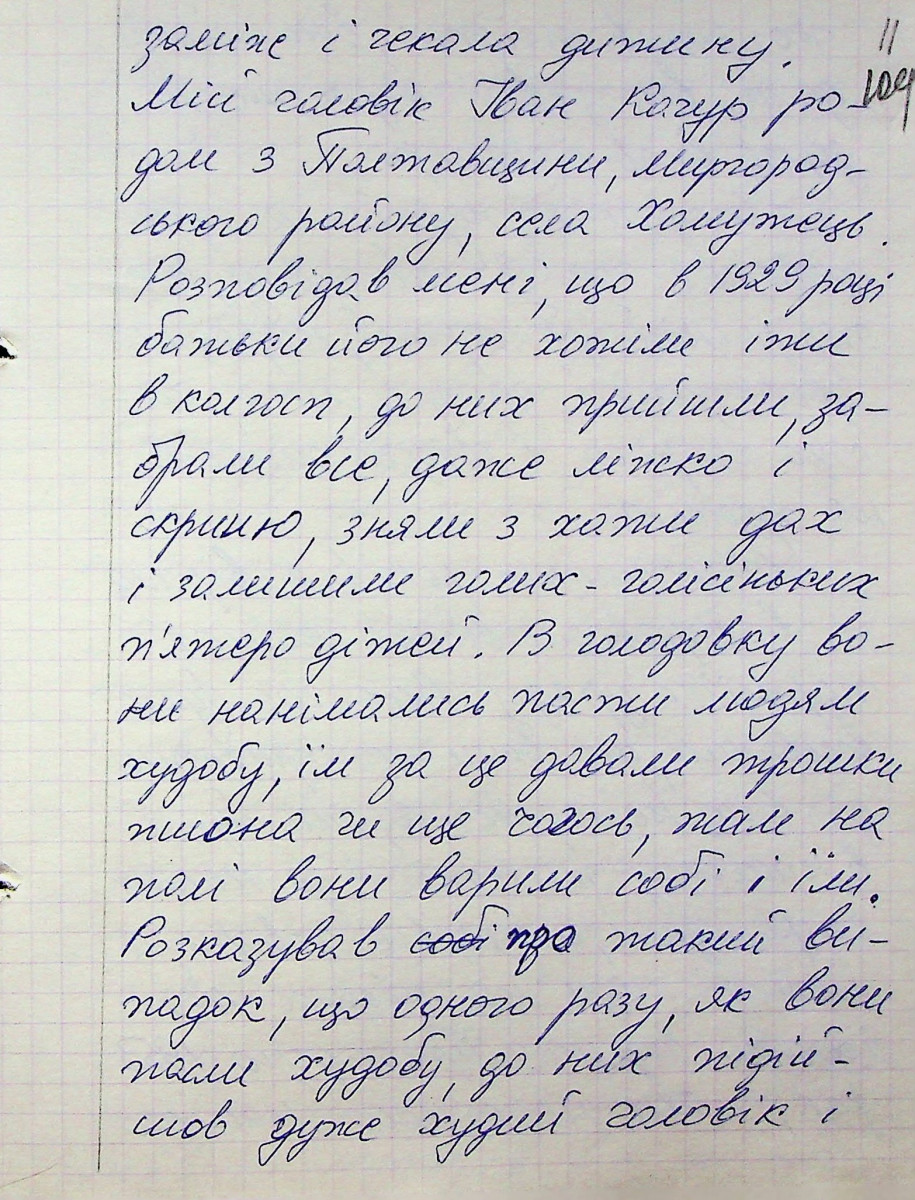 11
109
заміж і чекала дитину.
Мій чоловік Іван Качур ро-
дом з Полтавщини, Миргород-
ського району, села Хомутець.
Розповідав мені, що в 1929 році
батьки його не хотіли іти
в колгосп, до них прийшли, за-
брали все, даже ліжко і
скриню, зняли з хати дах
і залишили голих-голісіньких
п'ятеро дітей. В голодовку во-
ни нанімались пасти людям
худобу, їм за це давали трошки
пшона чи ще чогось, там на
полі вони варили собі і їли.
Розказував собі про такий ви-
падок, що одного разу, як вони
пасли худобу, до них підій-
шов дуже худий чоловік і